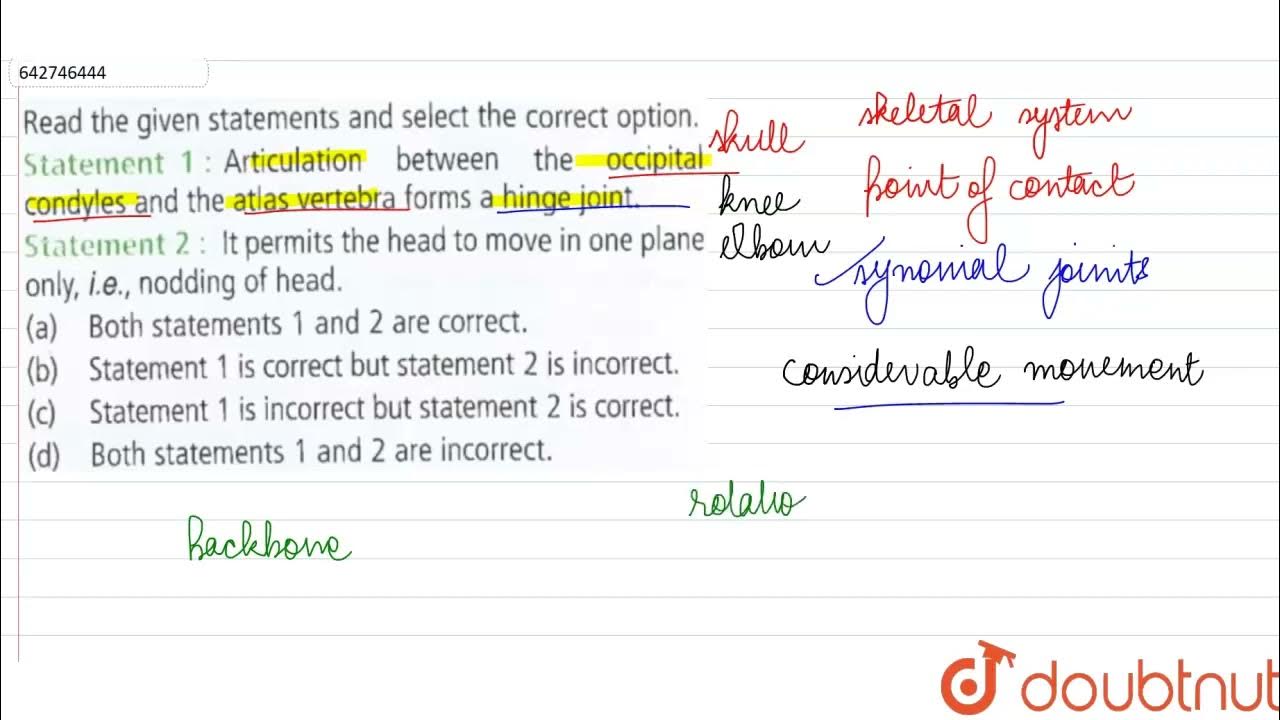 642746444
Read the given statements and select the correct option.
Statement 1 : Articulation between the occipital
condyles and the atlas vertebra forms a hinge joint.
Statement 2 : It permits the head to move in one plane
only, i.e., nodding of head.
(a) Both statements 1 and 2 are correct.
(b) Statement 1 is correct but statement 2 is incorrect.
(c) Statement 1 is incorrect but statement 2 is correct.
(d) Both statements 1 and 2 are incorrect.
skull
knee
elbow
skeletal system
point of contact
synovial joints
considerable movement
rotatio
backbone
doubtnut